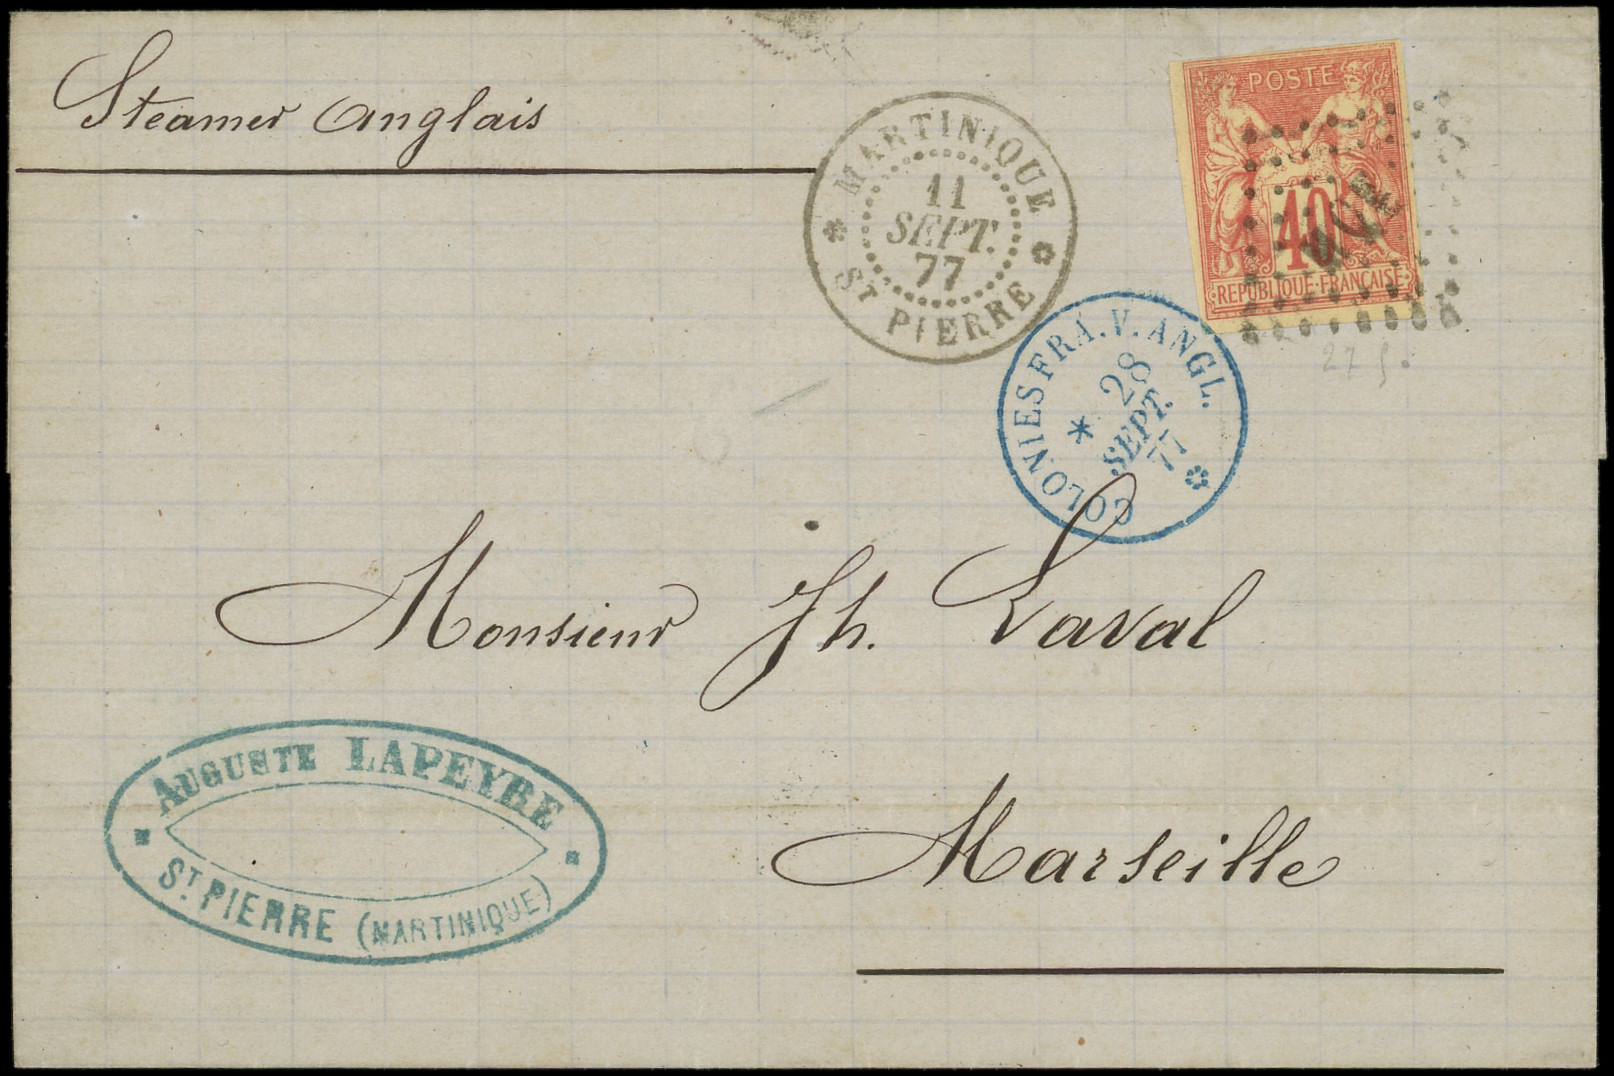 Steamer Anglais
MARTINIQUE
11
SEPT.
77
ST PIERRE
POSTE
40
REPUBLIQUE FRANÇAISE
COLONIES FRA. V. ANGL.
28
SEPT.
77
Monsieur Jh. Laval
Marseille
AUGUSTE LAPEYRE
ST. PIERRE (MARTINIQUE)